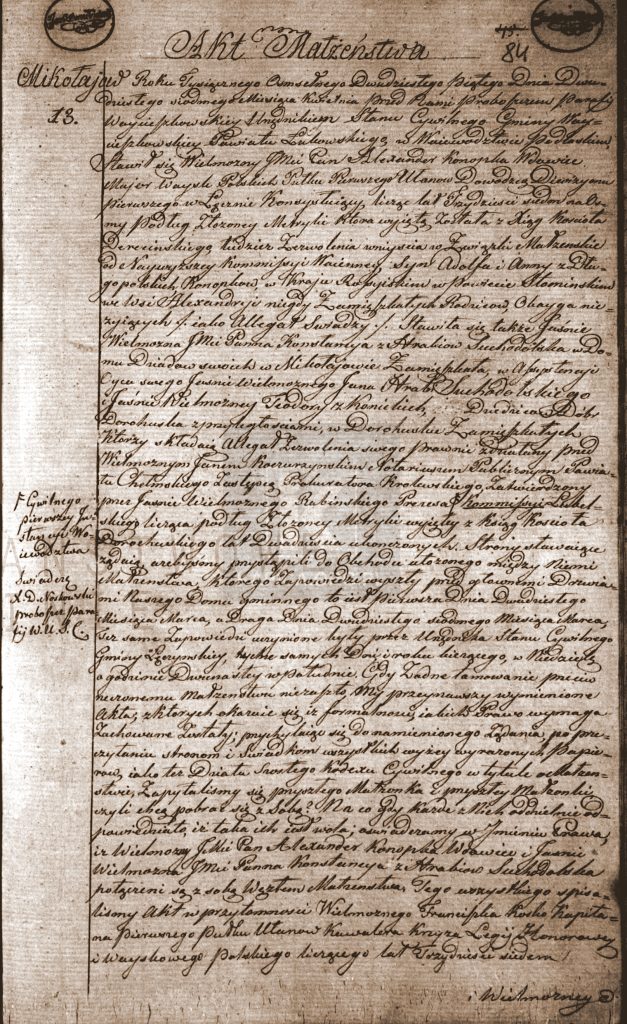 Akt Małżeństwa
84
Mikołajów
13.
Roku Tysiącznego Osmsetnego Dwudziestego Piątego Dnia Dwu-
dziestego siodmego Miesiąca Kwietnia przed Nami Proboszczem Parafij
Woycieszkowskiey Urzędnikiem Stanu Cywilnego Gminy Woy-
cieszkowskiey Powiatu Łukowskiego, w Woiewództwie Podlaskim
Stawił się Wielmożny JMci Pan Alexander Konopka Wdowiec
Major Woysk Polskich Pułku Pierwszego Ułanow Dowodzca Diwizyonu
Pierwszego w Łęcznie Konsystuiący, liczący lat Trzydzieści siedm
podług Złożoney Metryki która wyięta Została z Xiąg Kościoła
Derecinskiego tudzież Zezwolenia wniyścia w Związki Małżenskie
od Naywyższey Kommissyi Woienney, Syn Adolfa i Anny z Dłu-
gopolskich Konopkow, w Kraju Rossyiskim w Powiecie Słonimskim
we Wsi Alexandryi niegdy Zamieszkałych Rodzicow Obayga nie-
żyiących /: iako Allegat Swiadczy :/. Stawiła się także Jaśnie
Wielmożna JMci Panna Konstancya z Hrabiow Suchodolska w Do-
mu Dziadow swoich w Mikołajowie Zamieszkała, w Assystencyi
Oyca swego Jaśnie Wielmożnego Jana Hrabi Suchodolskiego
i Jaśnie Wielmożney Teodory z Kanickich, Dziedzica Dobr
Dorohuska z przyległościami, w Dorohusku Zamieszkałych
Którzy składaią Allegat Zezwolenia swego prawnie zdziałany przed
Wielmożnym Janem Koczurzynskim Notariuszem Publicznym Powia-
tu Chełmskiego Zastępcą Prokuratora Krolewskiego, Zatwierdzony
przez Jaśnie Wielmożnego Rubinskiego Prezesa Kommissyi Lubel-
skiego licząca podług Złożoney Metryki wyiętey z Xiąg Kościoła
Dorochuskiego lat Dwadzieścia ukonczonych. Strony stawaiące
żądaią, ażebyśmy przystąpili do Obchodu ułożonego między Niemi
Małżenstwa, którego Zapowiedzi wyszły przed głownemi Drzwia-
mi Naszego Domu gminnego to iest Pierwsza Dnia Dwudziestego
Miesiąca Marca, a Druga Dnia Dwudziestego siodmego Miesiąca Marca,
Też same Zapowiedzi uczynione były przez Urzędnika Stanu Cywilnego
Gminy Łęczynskiey, tychże samych Dni i roku bieżącego, w Niedzielę
o godzinie Dwunastey w południe. Gdy Żadne tamowanie przeciw
rzeczonemu Małżenstwu nie zaszło, My przeyrzawszy wymienione
Akta; z których okazuie się iż formalności, iakich Prawo wymaga
Zachowane Zostały; przychylaiąc się do namienionego Żądania, po prze-
czytaniu stronom i Swiadkom wszystkich wyżey wyrażonych Papie-
row, iako też Działu Szostego Kodexu Cywilnego w tytule o Małżen-
stwie, Zapytaliśmy się przyszłego Małżonka i przyszłey Małżonki,
czyli chcą pobrać się z Sobą? Na co gdy każde z Nich oddzielnie od-
powiedziało, iż taka ich iest wola, oświadczamy w Jmieniu Prawa,
iż Wielmożny JMci Pan Alexander Konopka Wdowiec i Jaśnie
Wielmożna JMci Panna Konstancya z Hrabiow Suchodolska
połączeni są z sobą Węzłem Małżenstwa. Tego wszystkiego spisa-
liśmy Akt w przytomności Wielmożnego Franciszka Kapita-
na Pierwszego Pułku Ułanow Kawalera Krzyża Legij Honorowey
i Woyskowego Polskiego liczącego lat Trzydzieści siedem
i Wielmożnego
Cywilnego
pierwszey Jn-
stancyi Wo-
iewodztwa
Swiadczę
X. D. Noskowski
proboszcz para-
fij W. U. S. C.